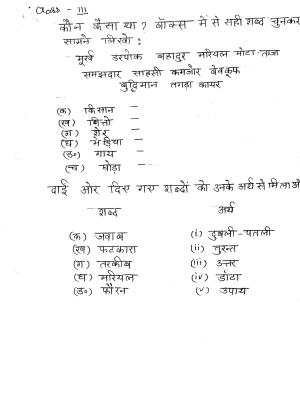 Class - III
कौन कैसा था ? बॉक्स में से सही शब्द चुनकर
सामने लिखो :
मूर्ख डरपोक बहादुर मरियल मोटा-ताजा
समझदार साहसी कमजोर बेवकूफ
बुद्धिमान तगड़ा कायर
(क) किसान –
(ख) बित्तो –
(ग) शेर –
(घ) भेड़िया –
(ङ) गाय –
(च) घोड़ा –
दाई ओर दिए गए शब्दों को उनके अर्थ से मिलाओ
शब्द अर्थ
(क) जवाब (i) दुबली-पतली
(ख) फटकारा (ii) तुरन्त
(ग) तरकीब (iii) उत्तर
(घ) मरियल (iv) डांटा
(ङ) फौरन (v) उपाय